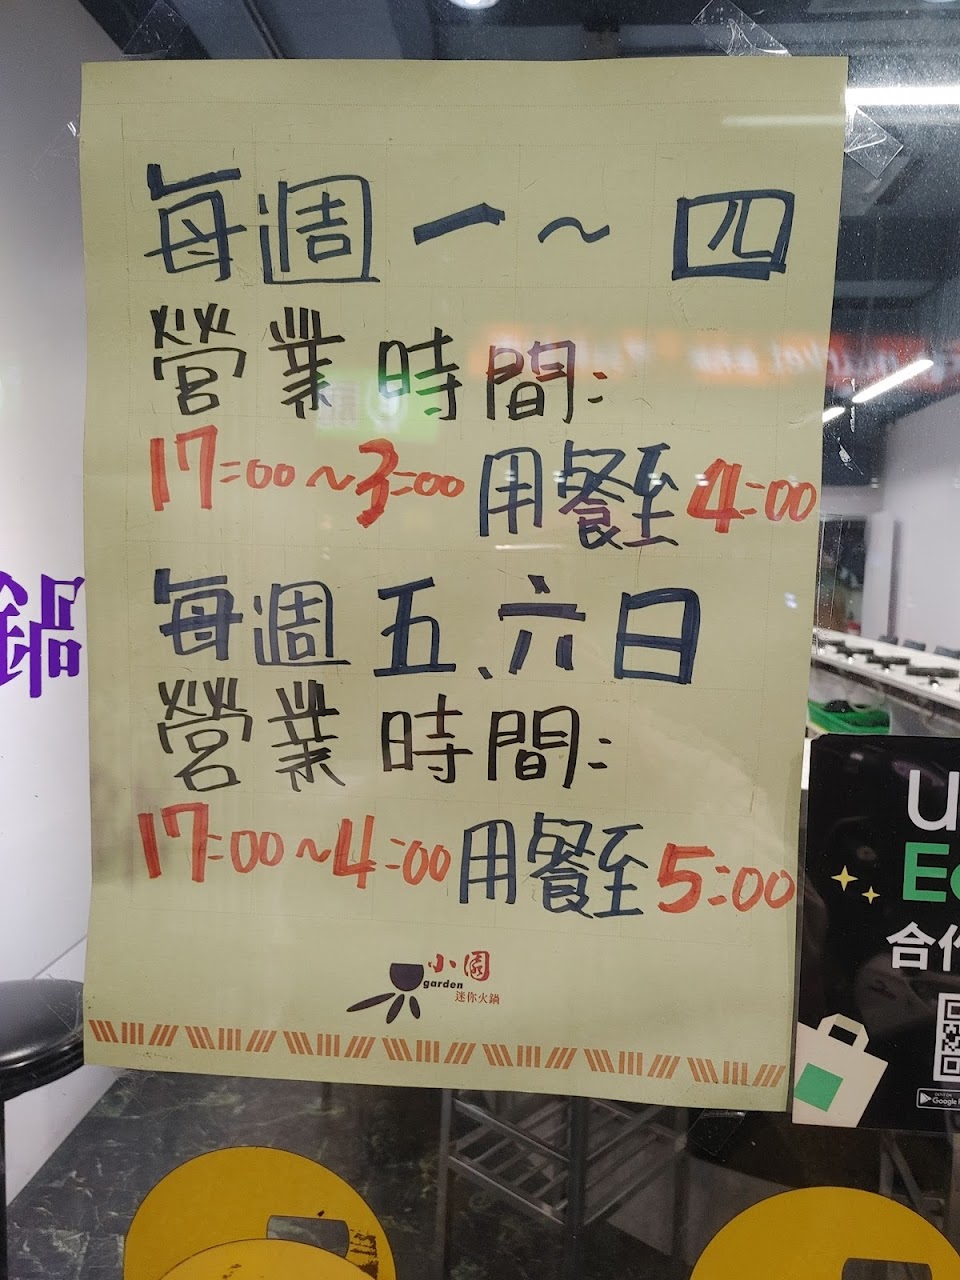 每週一~四
營業時間:
17:00~3:00 用餐至4:00
每週五、六日
營業時間:
17:00~4:00用餐至5:00
小園
garden
迷你火鍋
鍋
合作